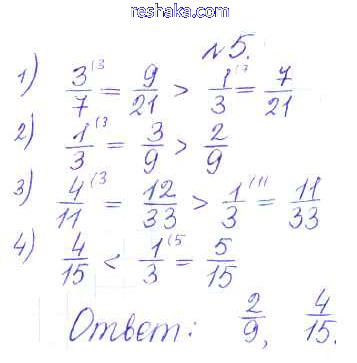 reshaka.com
№5.
1) 3/7 (3 = 9/21 > 1/3 (7 = 7/21
2) 1/3 (3 = 3/9 > 2/9
3) 4/11 (3 = 12/33 > 1/3 (11 = 11/33
4) 4/15 < 1/3 (5 = 5/15
Ответ: 2/9, 4/15.